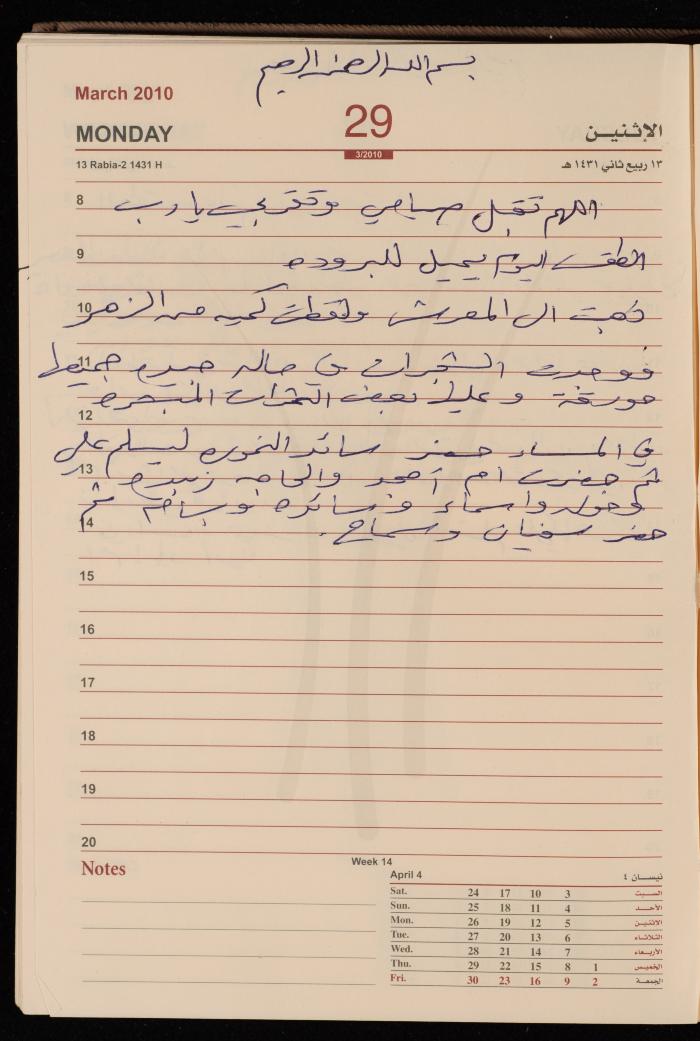 بسم الله الرحمن الرحيم
March 2010
MONDAY 29 الإثنين
13 Rabia-2 1431 H 3/2010 ١٣ ربيع ثاني ١٤٣١ هـ
8 اللهم تقبل صيامي وتقربي يا رب
9 الطقس اليوم يميل للبروده
10 ذهبت الى المعرش ولقطت كميه من الزهر
11 فوجدت الشجرات في حاله جيده جميعها
مورقة وعليها بعض الثمرات المتبحره
12
في المساء حضر سائد النموره ليسلم علي
13 ثم حضرت ام أمجد والحاجه زبيده
وخوله واسماء وسائده وسام ثم
14 حضر سفيان وسماح.
15
16
17
18
19
20
Notes
Week 14
April 4 نيسان ٤
Sat. 24 17 10 3 السبت
Sun. 25 18 11 4 الأحد
Mon. 26 19 12 5 الاثنين
Tue. 27 20 13 6 الثلاثاء
Wed. 28 21 14 7 الأربعاء
Thu. 29 22 15 8 1 الخميس
Fri. 30 23 16 9 2 الجمعة